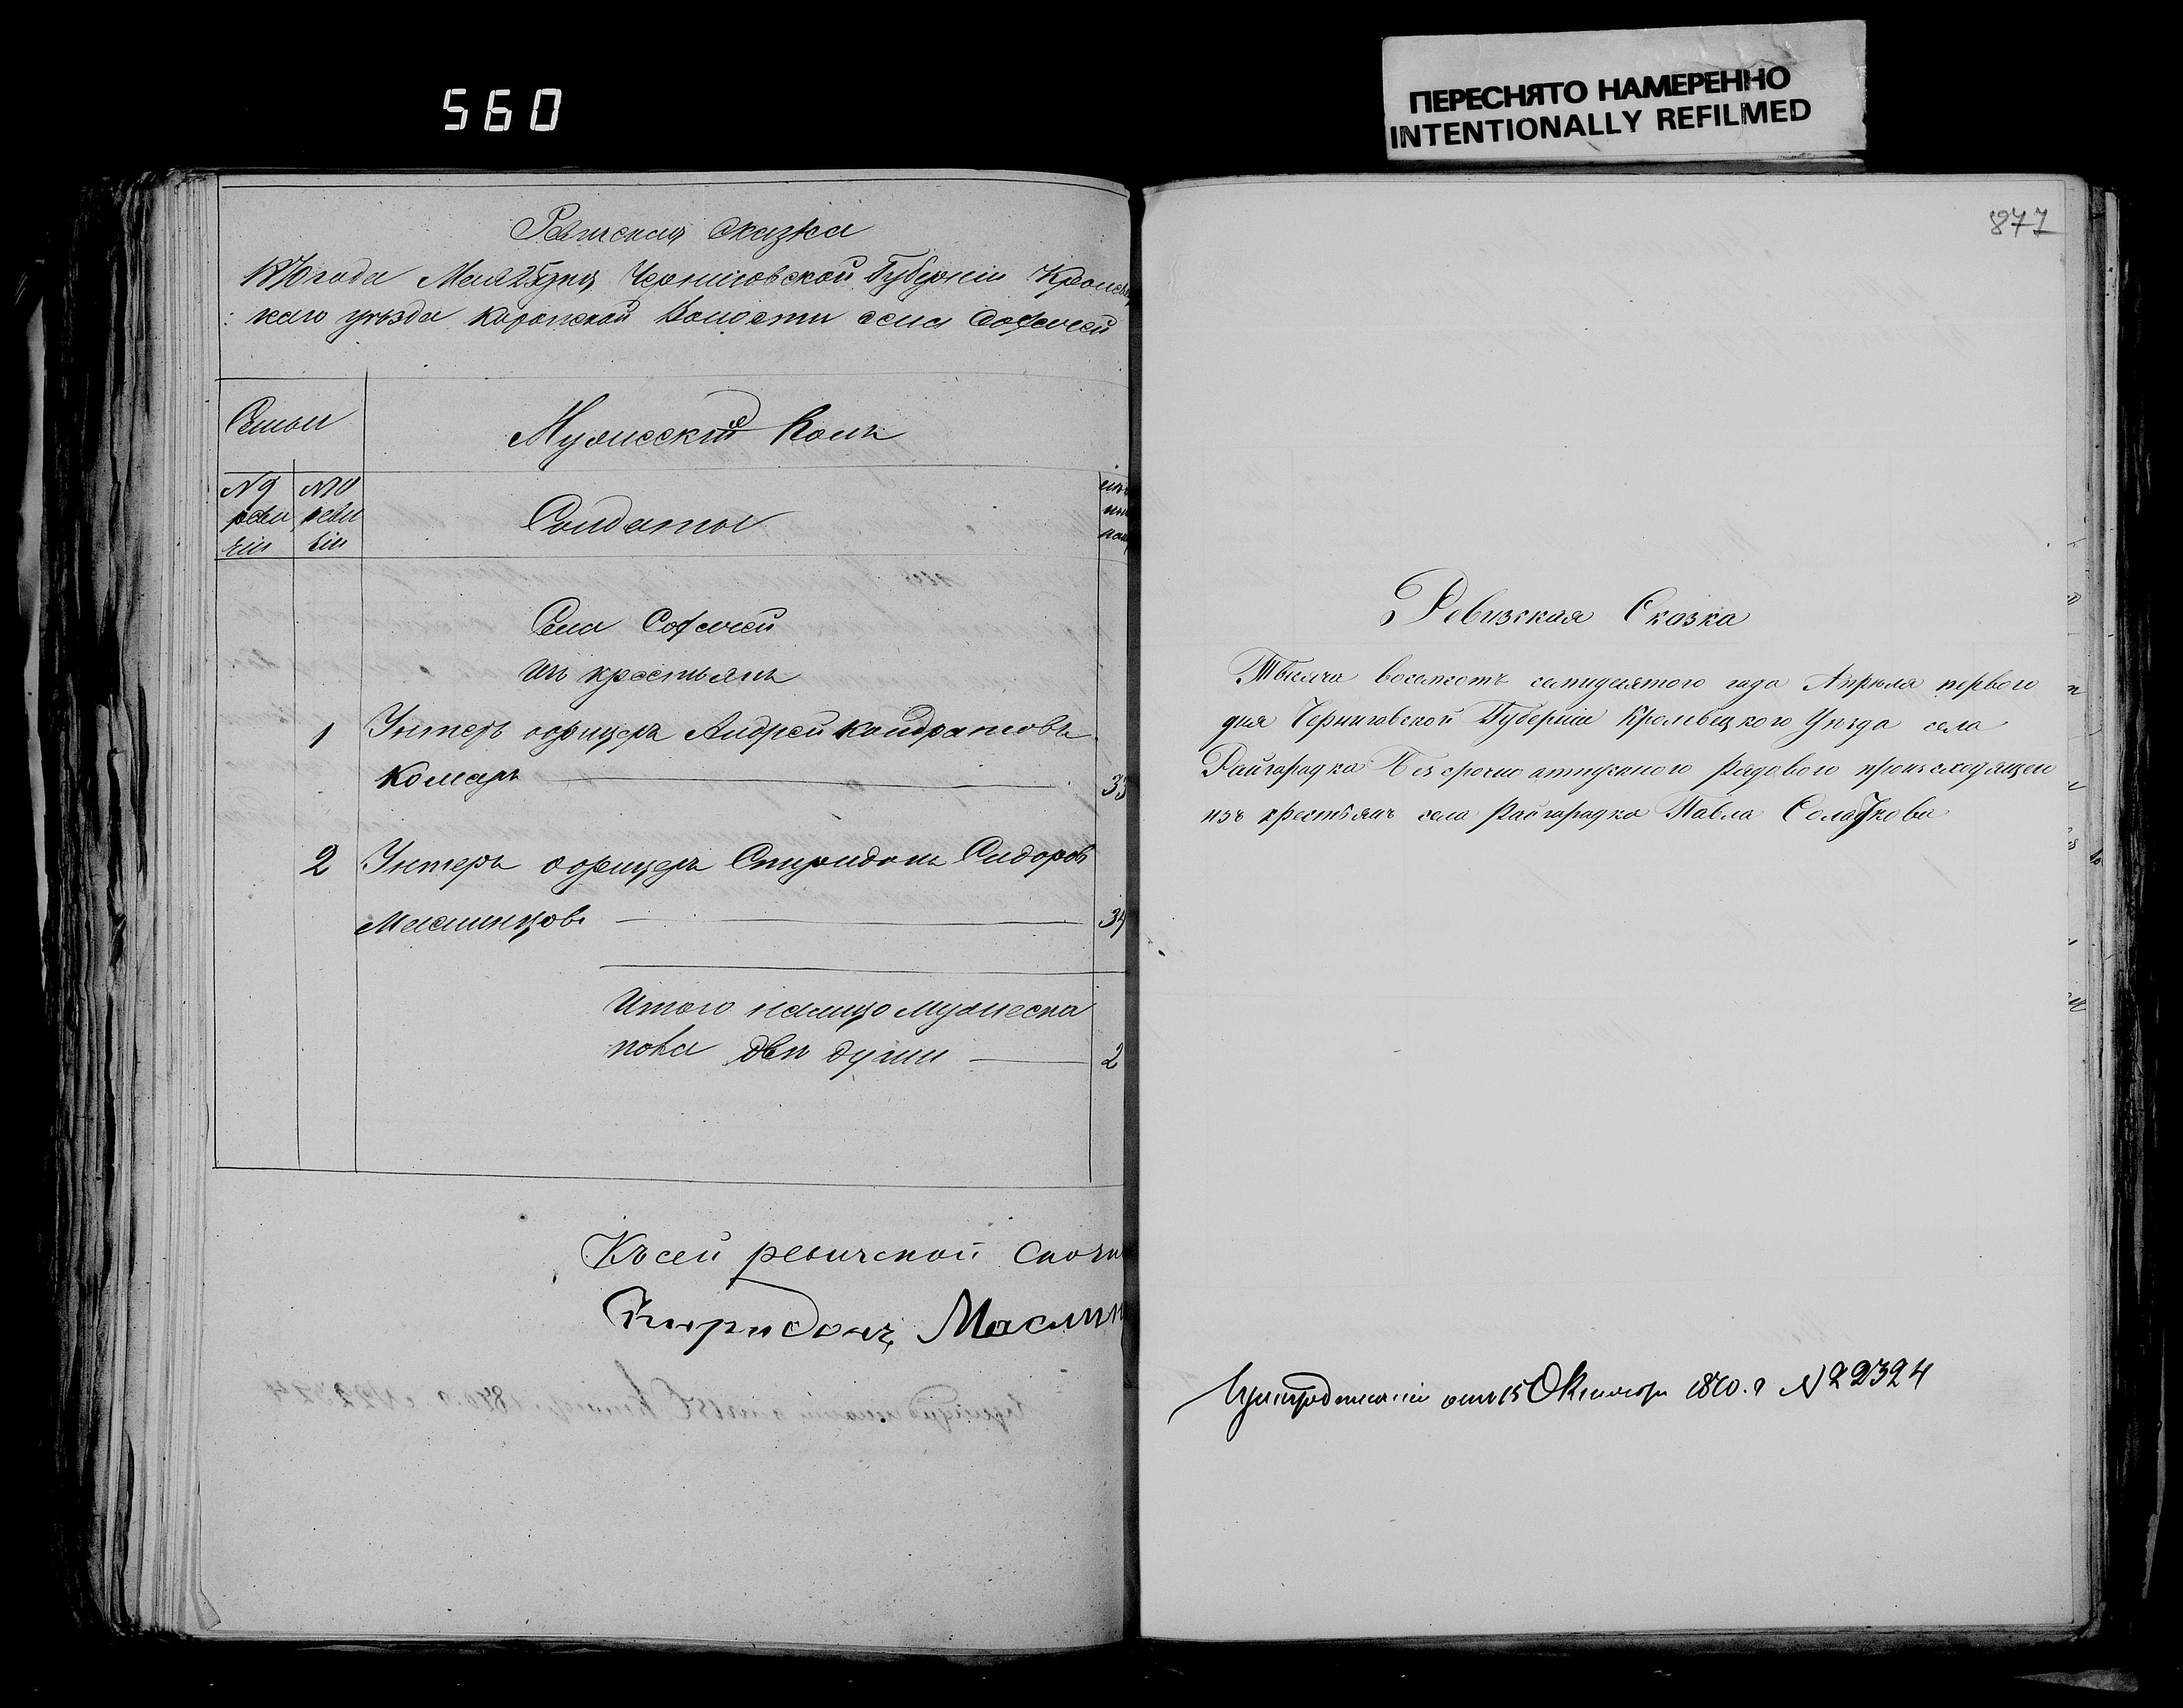 560
ПЕРЕСНЯТО НАМЕРЕННО
INTENTIONALLY REFILMED
Ревизская сказка
1870 года Мая 25 дня Черниговской Губернiи Кролевец
каго уѣзда Коропской Волости села Софiевки
Семьи
Мужескiй полъ
№ 9 ревизiи
№ 10 ревизiи
Солдаты
Села
Изъ крестьянъ
1 Унтеръ офицеръ Андрей Кондратовъ
Комаръ 33
2 Унтеръ офицеръ Спиридонъ Сидоровъ
Маслинцовъ 34
Итого налицо мужеска
пола двѣ души 2
Къ сей ревизской сказк
Спиридонъ Маслин
877
Ревизская Сказка
Тысяча восемсотъ семидесятого года Апрѣля первого
дня Черниговской Губернiи Кролевецкого Уѣзда села
Райгородка Безсрочно отпускного Рядового происходящего
изъ крестьянъ села Райгородка Павла
отъ 15 Октября 1870. г № 22324